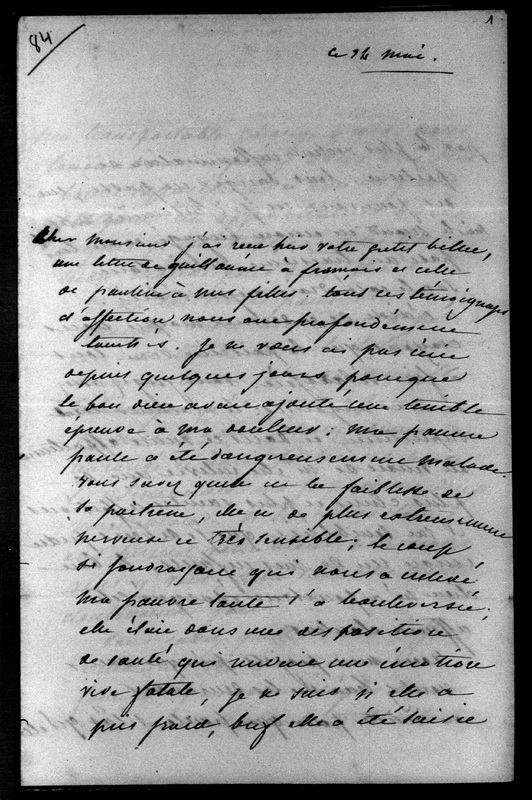 84
1
ce 24 mai.
Cher monsieur j'ai recu hier votre petit billet,
une lettre de guillaume à francois et celle
de pauline à mes filles. tous ces témoignages
d'affection nous ont profondément
touchés. Je ne vous ai pas écrit
depuis quelques jours parceque
le bon dieu avait ajouté une terrible
épreuve à ma douleur: ma pauvre
paule a été dangereusement malade.
vous savez quelle est la faiblesse de
sa poitrine, elle est de plus extremement
nerveuse et très sensible; le coup
si foudroyant qui nous a enlevé
ma pauvre tante l'a bouleversée;
elle était dans une disposition
de santé qui rendait une émotion
vive fatale, je ne sais si elle a
pris froid, bref elle a été saisie